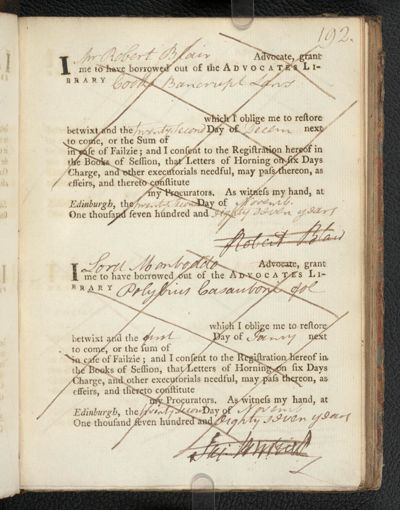 192.
I Mr Robert Blair Advocate, grant
me to have borrowed out of the ADVOCATES LI-
BRARY Cooks Bancrupt Laws
which I oblige me to reſtore
betwixt and the twenty second Day of Decem next
to come, or the Sum of
in caſe of Failzie; and I conſent to the Regiſtration hereof in
the Books of Seſſion, that Letters of Horning on ſix Days
Charge, and other executorials needful, may paſs thereon, as
effeirs, and thereto conſtitute
my Procurators. As witneſs my hand, at
Edinburgh, the twenty second Day of Novemb.
One thouſand ſeven hundred and eighty seven years
Robert Blair
I Lord Monboddo Advocate, grant
me to have borrowed out of the ADVOCATES LI-
BRARY Polybius Casauboni fol
which I oblige me to reſtore
betwixt and the first Day of Janry next
to come, or the ſum of
in caſe of Failzie; and I conſent to the Regiſtration hereof in
the Books of Seſſion, that Letters of Horning on ſix Days
Charge, and other executorials needful, may paſs thereon, as
effeirs, and thereto conſtitute
my Procurators. As witneſs my hand, at
Edinburgh, the twenty second Day of Novemb
One thouſand ſeven hundred and eighty seven years